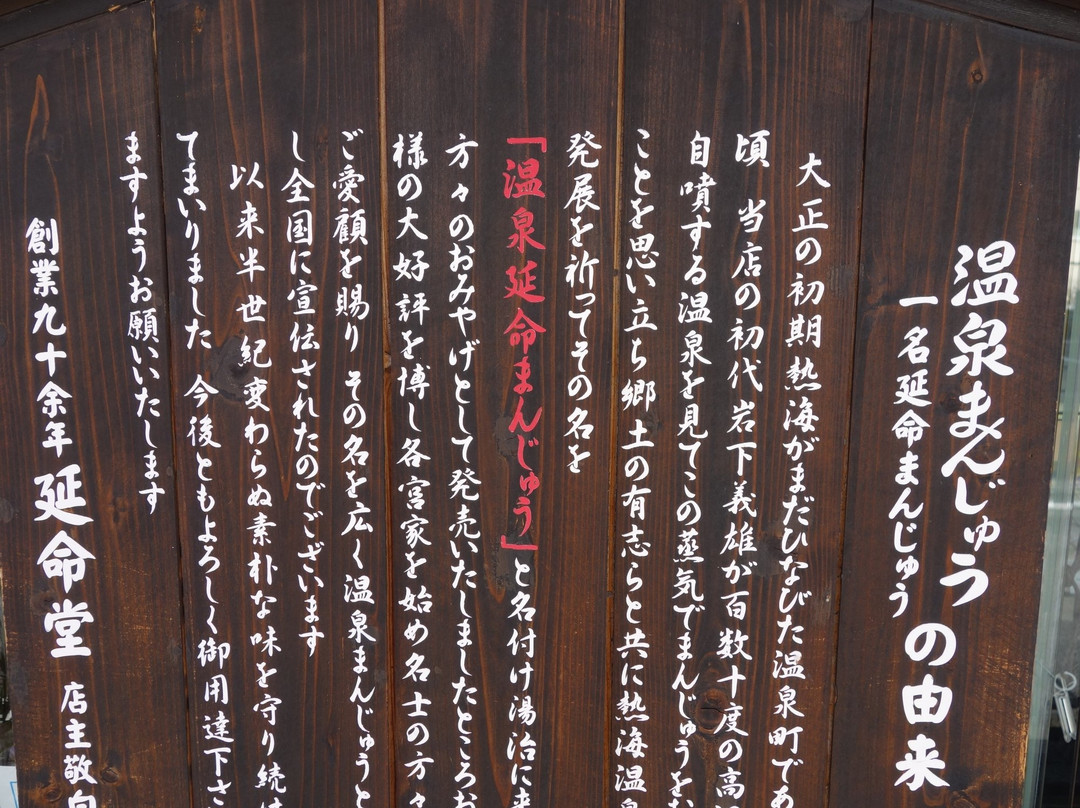 温泉まんじゅう
一名延命まんじゅう
の由来
大正の初期熱海がまだひなびた温泉町であ
頃 当店の初代岩下義雄が百数十度の高
自噴する温泉を見てこの蒸気でまんじゅうを
ことを思い立ち郷土の有志らと共に熱海温
発展を祈ってその名を
「温泉延命まんじゅう」と名付け湯治に来
方々のおみやげとして発売いたしましたところお
様の大好評を博し各宮家を始め名士の方々
ご愛顧を賜り その名を広く温泉まんじゅうと
し全国に宣伝されたのでございます
以来半世紀変わらぬ素朴な味を守り続け
てまいりました 今後ともよろしく御用達下さ
ますようお願いいたします
創業九十余年 延命堂 店主敬白